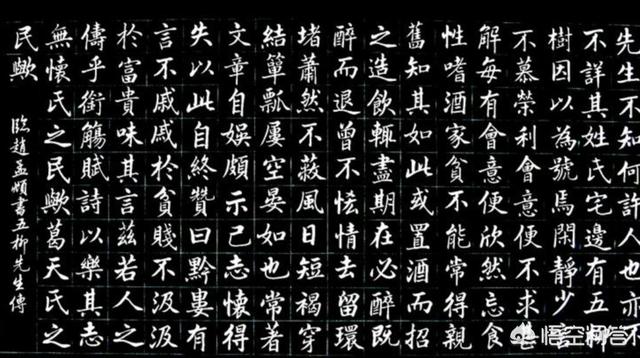 先生不知何許人也亦不
不詳其姓氏宅邊有五柳
樹因以為號焉閑靜少言
不慕榮利會意便不求
解每有會意便欣然忘食
性嗜酒家貧不能常得親
舊知其如此或置酒而招
之造飲輒盡期在必醉既
醉而退曾不恡情去留環
堵蕭然不蔽風日短褐穿
結簞瓢屢空晏如也常著
文章自娛頗示己志懷得
失以此自終贊曰黔婁有
言不戚戚於貧賤不汲汲
於富貴味其言茲若人之
儔乎銜觴賦詩以樂其志
無懷氏之民歟葛天氏之
民歟
臨趙孟頫書五柳先生傳
悟空问答